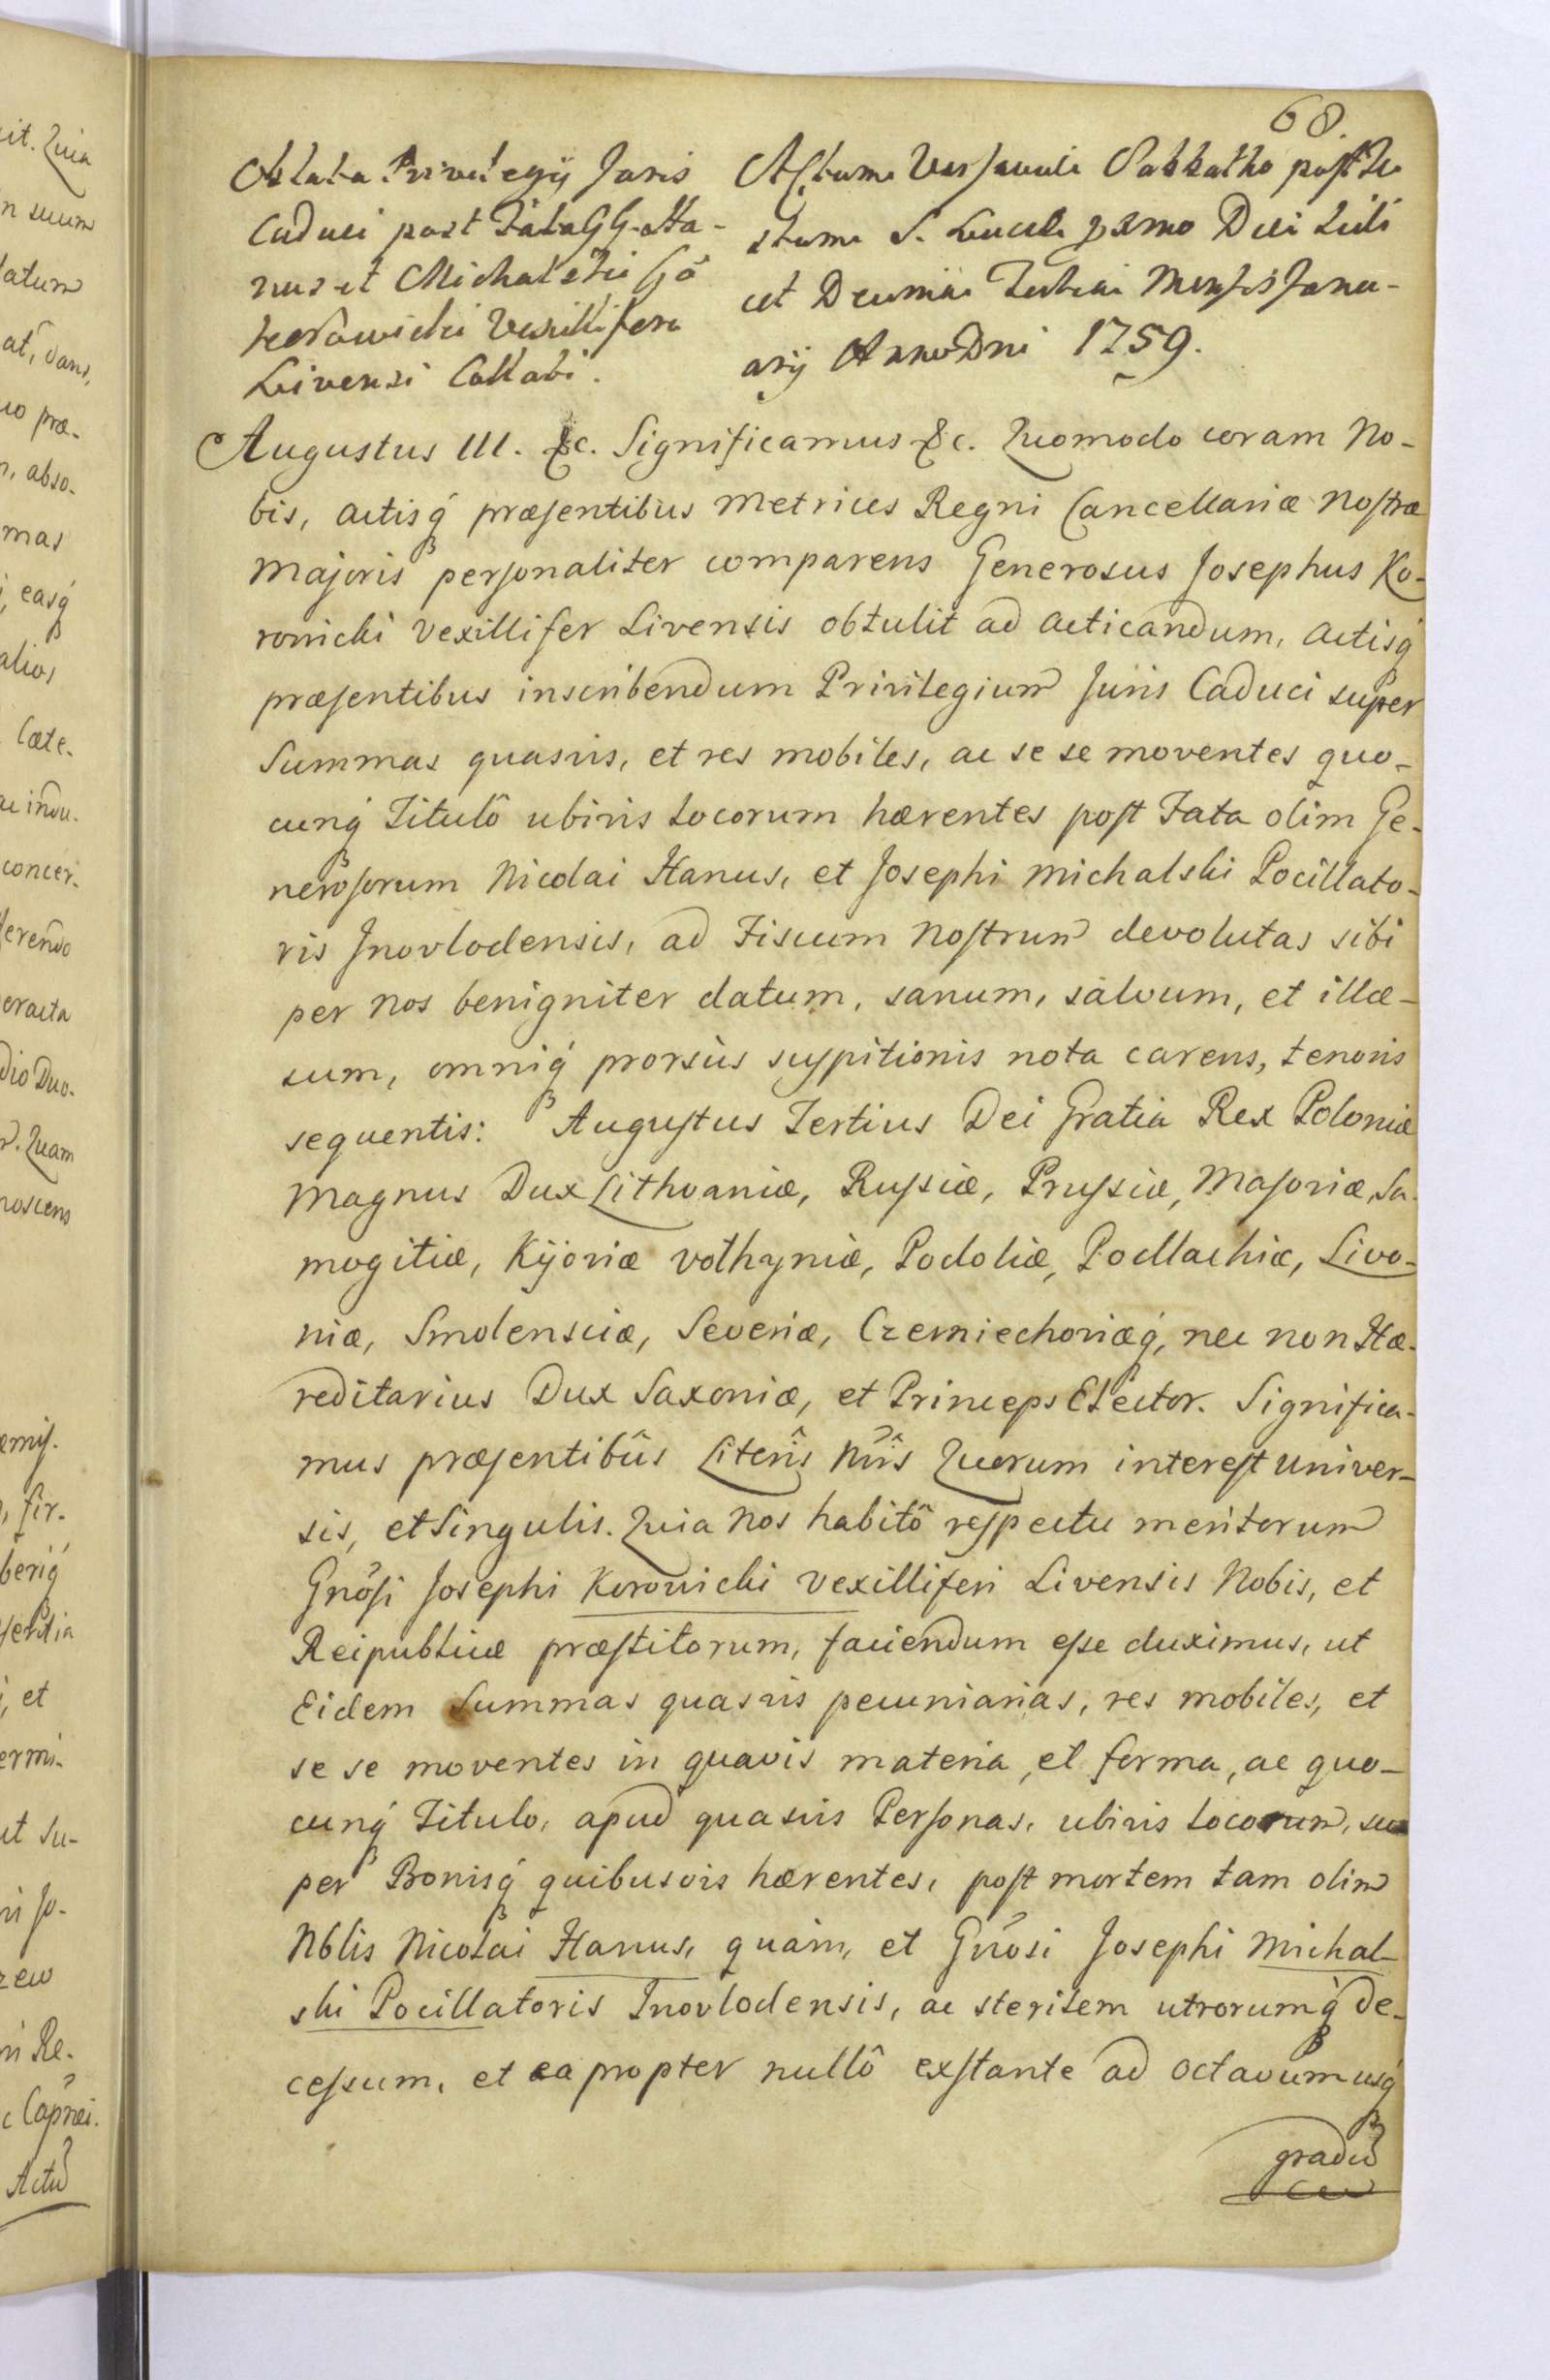 68.
Oblata Privilegij Juris
Caduci post Fata GG. Ha-
nus et Michalski Gō
Korowicki Vexillifero
Livensi Collati.
Actum Varsaviæ Sabbatho post Fe
stum S. primo Die
et Decima Tertia Mensis Janu-
arij Anno Dni 1759.
Augustus III. &c. Significamus &c. Quomodo coram No-
bis, Actisq́ præsentibus Metrices Regni Cancellariæ Nostræ
Majoris personaliter comparens Generosus Josephus Ko-
rowicki Vexillifer Livensis obtulit ad Acticandum, Actisq́
præsentibus inscribendum Privilegium Juris Caduci super
Summas quasvis, et res mobiles, ac se se moventes quo-
cunq́ Titulô ubivis Locorum hærentes post Fata olim Ge-
nerosorum Nicolai Hanus, et Josephi Michalski Pocillato-
ris Inovlodensis, ad Fiscum Nostrum devolutas sibi
per Nos benigniter datum, sanum, salvum, et illæ-
sum, omniq́ prorsùs suspitionis nota carens, tenoris
sequentis: Augustus Tertius Dei Gratia Rex Poloniæ
Magnus Dux Lithvaniæ, Russiæ, Prussiæ, Masoviæ, Sa-
mogitiæ, Kijoviæ Volhyniæ, Podoliæ, Podlachiæ, Livo-
niæ, Smolensciæ, Severiæ, Czerniechoviæq́, nec non Hæ-
reditarius Dux Saxoniæ, et Princeps Elector. Significa-
mus præsentibûs Literîs Nrîs Quorum interest univer-
sis, et Singulis. Quia Nos habitô respectu meritorum
Gnosi Josephi Korowicki Vexilliferi Livensis Nobis, et
Reipublicæ præstitorum, faciendum esse duximus, ut
Eidem Summas quasvis pecuniarias, res mobiles, et
se se moventes in quavis materia, et forma, ac quo-
cunq́ Titulo, apud quasvis Personas, ubivis Locorum, su
per Bonisq́ quibusvis hærentes, post mortem tam olim
Nblis Nicolai Hanus, quàm, et Gnosi Josephi Michal-
ski Pocillatoris Inovlodensis, ac sterilem utrorumq́ de-
cessum, et ea propter nullô exstante ad octavum usq́
gradū